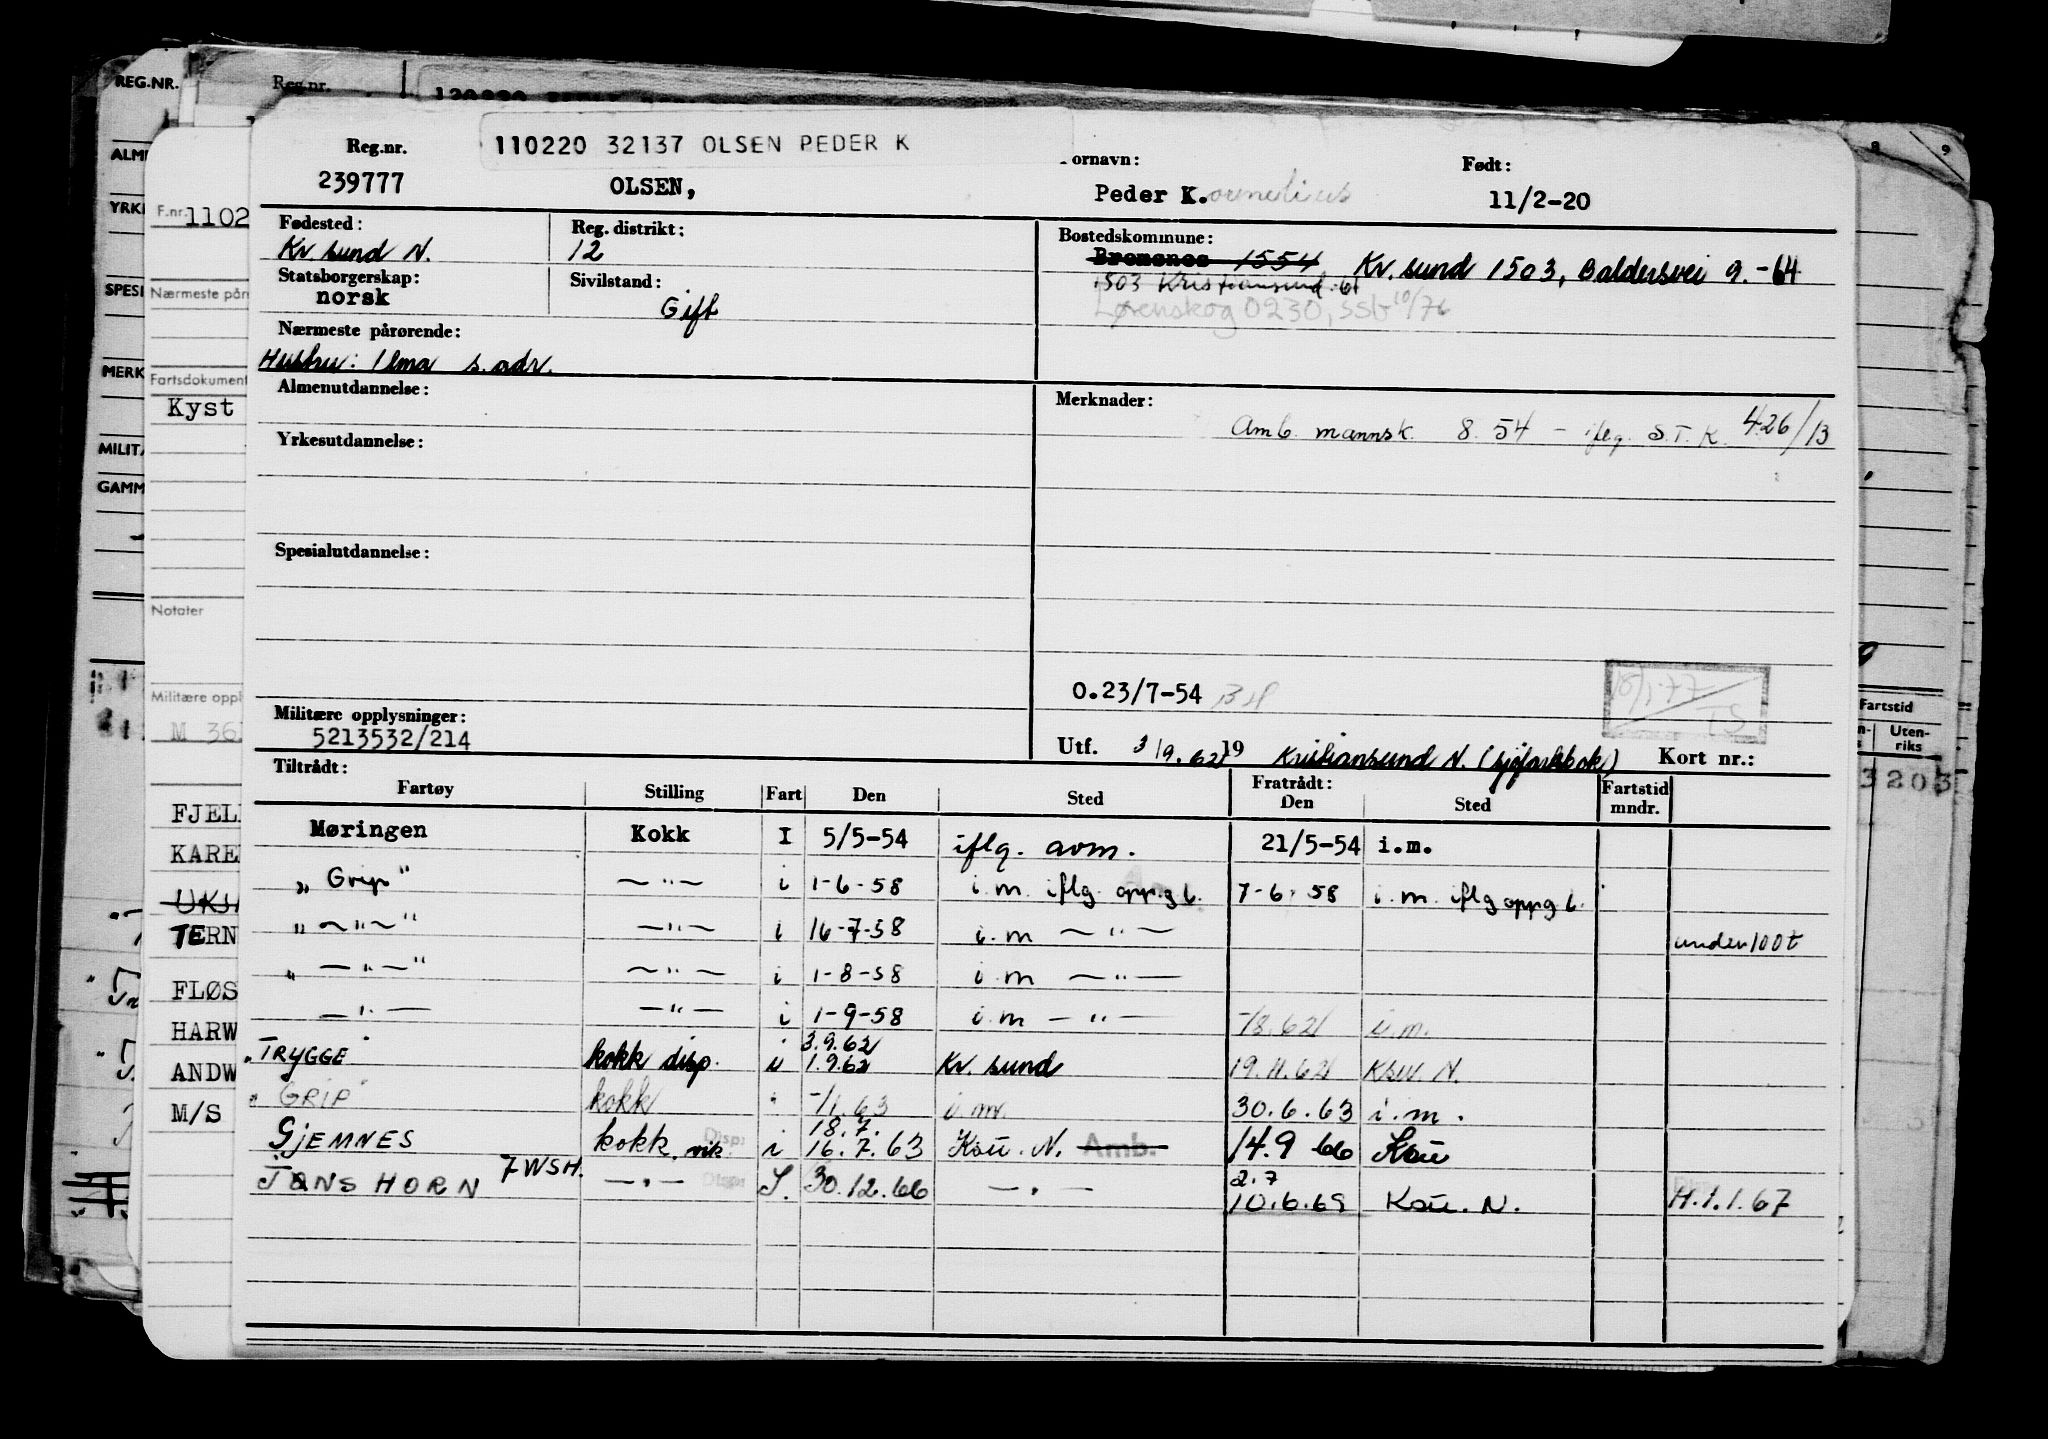 REG.NR.
Reg.nr.
F.nr. 1102
Nærmeste pår
Fartsdokument
Kyst
Notater
Militære oppl
M 36
FJELL
KARE
TERN
FLØS
HARW
ANDW
M/S
YRK
SPESI
MERK
MILITA
GAMM
8 9
Fartstid
Uten-
riks
3203
110220 32137 OLSEN PEDER K
Reg.nr. ornavn: Født:
239777 OLSEN, Peder K.ornelius 11/2-20
Fødested: Reg. distrikt: Bostedskommune:
Kr. sund N. 12 Bremsnes 1554 Kr. sund 1503, Baldersvei 9.-64
Statsborgerskap: Sivilstand: 1503 Kristiansund 61
norsk Gift Lørenskog 0230, SSB 10/76
Nærmeste pårørende:
Hustru: Ilma s. adr.
Almenutdannelse: Merknader:
Amb. mannsk. 8. 54 - iflg. S.T.K. 426/13
Yrkesutdannelse:
Spesialutdannelse:
0.23/7-54
18/1-77
TS
Militære opplysninger:
5213532/214
Utf. 3/9. 62 19 Kristiansund N. (sjøfartsbok) Kort nr.:
Tiltrådt: Fratrådt: Fartstid
Fartøy Stilling Fart Den Sted Den Sted mndr.
Møringen Kokk I 5/5-54 iflg. avm. 21/5-54 i.m.
„ Grip" —"— i 1-6-58 i.m. iflg. oppg b. 7-6-58 i.m. iflg oppg b.
„ —"—" —"— i 16-7-58 i.m —"— under 100t
„ —"—" —"— i 1-8-58 i.m —"—
—"— —"— i 1-9-58 i.m —"— -/8.62 i.m.
3.9.62
"TRYGGE" kokk disp. i 1.9.62 Kr. sund 19.11.62 Ksu. N.
"GRIP" kokk " -/1.63 i.m. 30.6.63 i.m.
18.7.
GJEMNES kokk. vik Disp: i 16.7.63 Ksu. N. Amb. 14.9 66 Ksu
2.7
JANS HORN 7WSH. —"— Disp: S. 30.12.66 —"— 10.6.69 Ksu. N. H.1.1.67